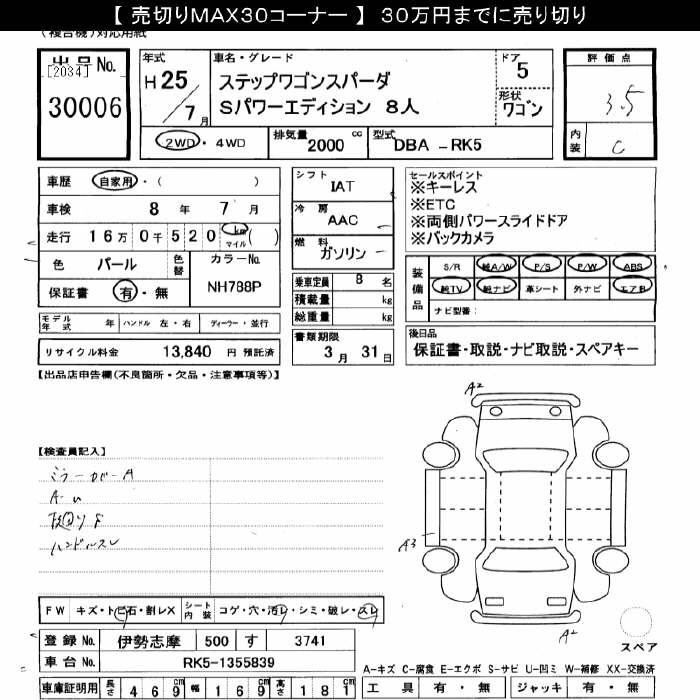 【 売切りMAX30コーナー 】 30万円までに売り切り
(複合機)対応用紙
出品No. [2034] 30006
年式 H25/7月
車名・グレード ステップワゴンスパーダ
Sパワーエディション 8人
ドア 5
形状 ワゴン
評価点 3.5
内装 C
2WD・4WD 排気量 2000 cc 型式 DBA -RK5
車歴 自家用・( )
車検 8 年 7 月
走行 16万0千520 km マイル ( )
色 パール 色替 カラーNo. NH788P
保証書 有・無
モデル年式 年 ハンドル 左・右 ディーラー・並行
リサイクル料金 13,840 円 預託済
シフト IAT
冷房 AAC
燃料 ガソリン
乗車定員 8 名
積載量 kg
総重量 kg
書類期限
3月 31日
セールスポイント
※キーレス
※ETC
※両側パワースライドドア
※バックカメラ
装備品 S/R 純A/W P/S P/W ABS
純TV 純ナビ 革シート 外ナビ エアB
ナビ型番:
後日品
保証書・取説・ナビ取説・スペアキー
【出品店申告欄(不良箇所・欠品・注意事項等)】
【検査員記入】
ミラーカバーA
A・U
ハンドルスレ
A2
A3
A2
スペア
FW キズ・トビ石・割レX シート内装 コゲ・穴・汚レ・シミ・破レ・スレ
登録No. 伊勢志摩 500 す 3741
車台No. RK5-1355839
A-キズ C-腐食 E-エクボ S-サビ U-凹ミ W-補修 XX-交換済
車庫証明用 長さ 469cm 幅 169cm 高さ 181cm
工具 有・無 ジャッキ 有・無